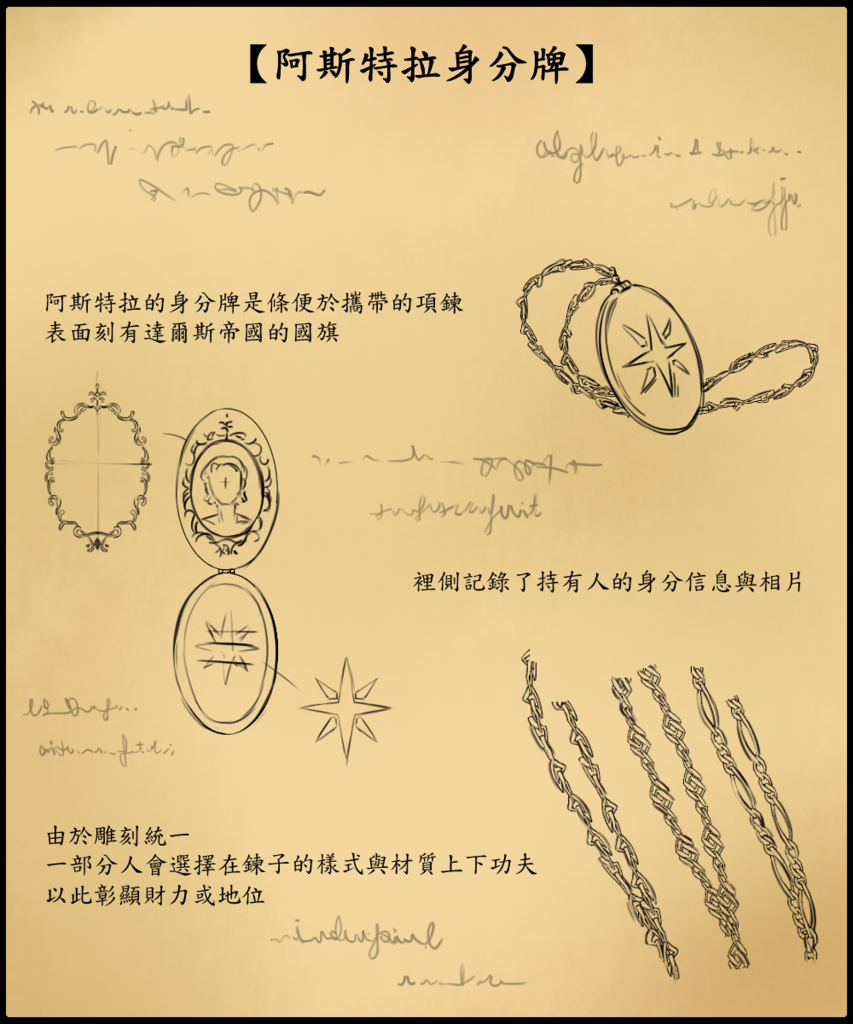 【阿斯特拉身分牌】
阿斯特拉的身分牌是條便於攜帶的項鍊
表面刻有達爾斯帝國的國旗
裡側記錄了持有人的身分信息與相片
由於雕刻統一
一部分人會選擇在鍊子的樣式與材質上下功夫
以此彰顯財力或地位